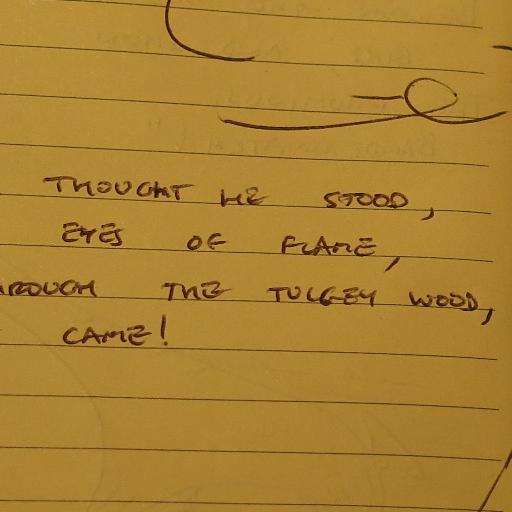 THOUGHT HE STOOD,
EYES OF FLAME,
ROUGH THE TULGEY WOOD,
CAME!